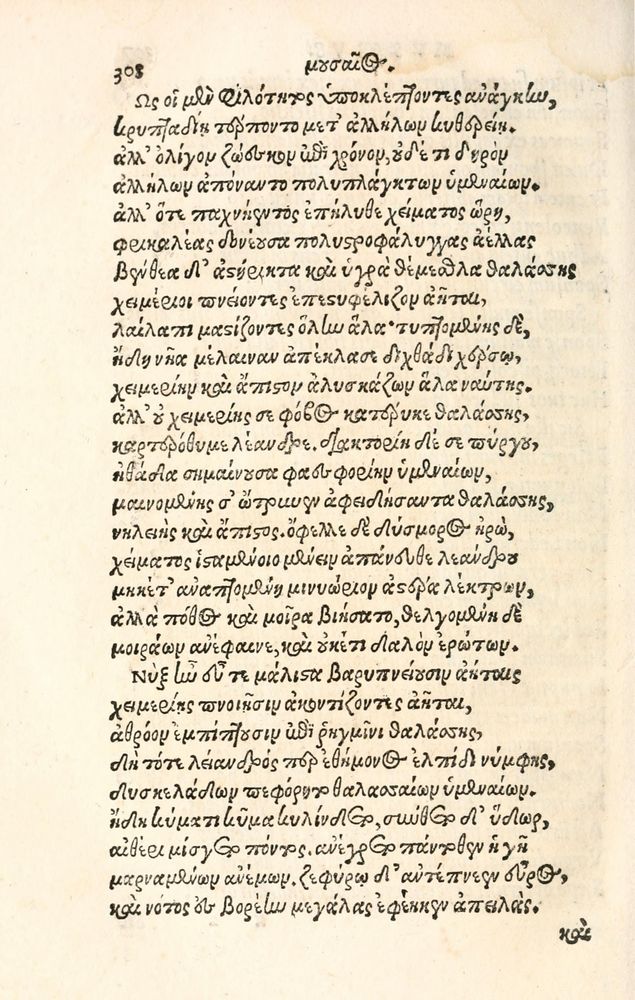 308
μουσαῖος.
Ως οἳ μὲν φιλότητος ὑποκλέπτοντες ἀνάγκην,
κρυπταδίῃ τέρποντο μετ' ἀλλήλων κυθερείῃ.
ἀλλ' ὀλίγον ζώεσκον ἐπὶ χρόνον, οὐδέ τι δηρὸν
ἀλλήλων ἀπόναντο πολυπλάγκτων ὑμεναίων.
ἀλλ' ὅτε παχνήεντος ἐπήλυθε χείματος ὥρη,
φρικαλέας δονέουσα πολυστροφάλυγγας ἀέλλας
βένθεα δ' ἀστήρικτα καὶ ὑγρὰ θέμεθλα θαλάσσης
χειμέριοι πνείοντες ἐπεστυφέλιζον ἀῆται,
λαίλαπι μαστίζοντες ὅλην ἅλα· τυπτομένης δὲ,
ἤδη νῆα μέλαιναν ἀπέκλασε διχθάδι χέρσῳ,
χειμερίην καὶ ἄπιστον ἀλυσκάζων ἅλα ναύτης.
ἀλλ' οὐ χειμερίης σε φόβος κατέρυκε θαλάσσης,
καρτερόθυμε λέανδρε. διακτορίη δέ σε πύργου,
ἠθάδα σημαίνουσα φαεσφορίην ὑμεναίων,
μαινομένης σ' ὤτρυνεν ἀφειδήσαντα θαλάσσης,
νηλειὴς καὶ ἄπιστος. ὄφελλε δὲ δύσμορος ἡρὼ,
χείματος ἱσταμένοιο μένειν ἀπάνευθε λεάνδρου
μηκέτ' ἀναπτομένη μινυώριον ἀστέρα λέκτρων,
ἀλλὰ πόθος καὶ μοῖρα βιήσατο, θελγομένη δὲ
μοιράων ἀνέφαινε, καὶ οὐκέτι δαλὸν ἐρώτων.
Νὺξ ἦν εὖτε μάλιστα βαρυπνείουσιν ἀήταις
χειμερίης πνοιῇσιν ἀκοντίζοντες ἀῆται,
ἀθρόον ἐμπίπτουσιν ἐπὶ ῥηγμῖνι θαλάσσης,
δὴ τότε λέιανδρός περ ἐθήμονος ἐλπίδι νύμφης,
δυσκελάδων πεφόρητο θαλασσαίων ὑμεναίων.
ἤδη κύματι κῦμα κυλίνδετο, σύνθετο δ' ὕδωρ,
αἰθέρι μίσγετο πόντος. ἀνέγρετο πάντοθεν ἠχὴ
μαρναμένων ἀνέμων. ζεφύρῳ δ' ἀντέπνεεν εὖρος,
καὶ νότος ἐς βορέην μεγάλας ἐφέηκεν ἀπειλὰς.
καὶ